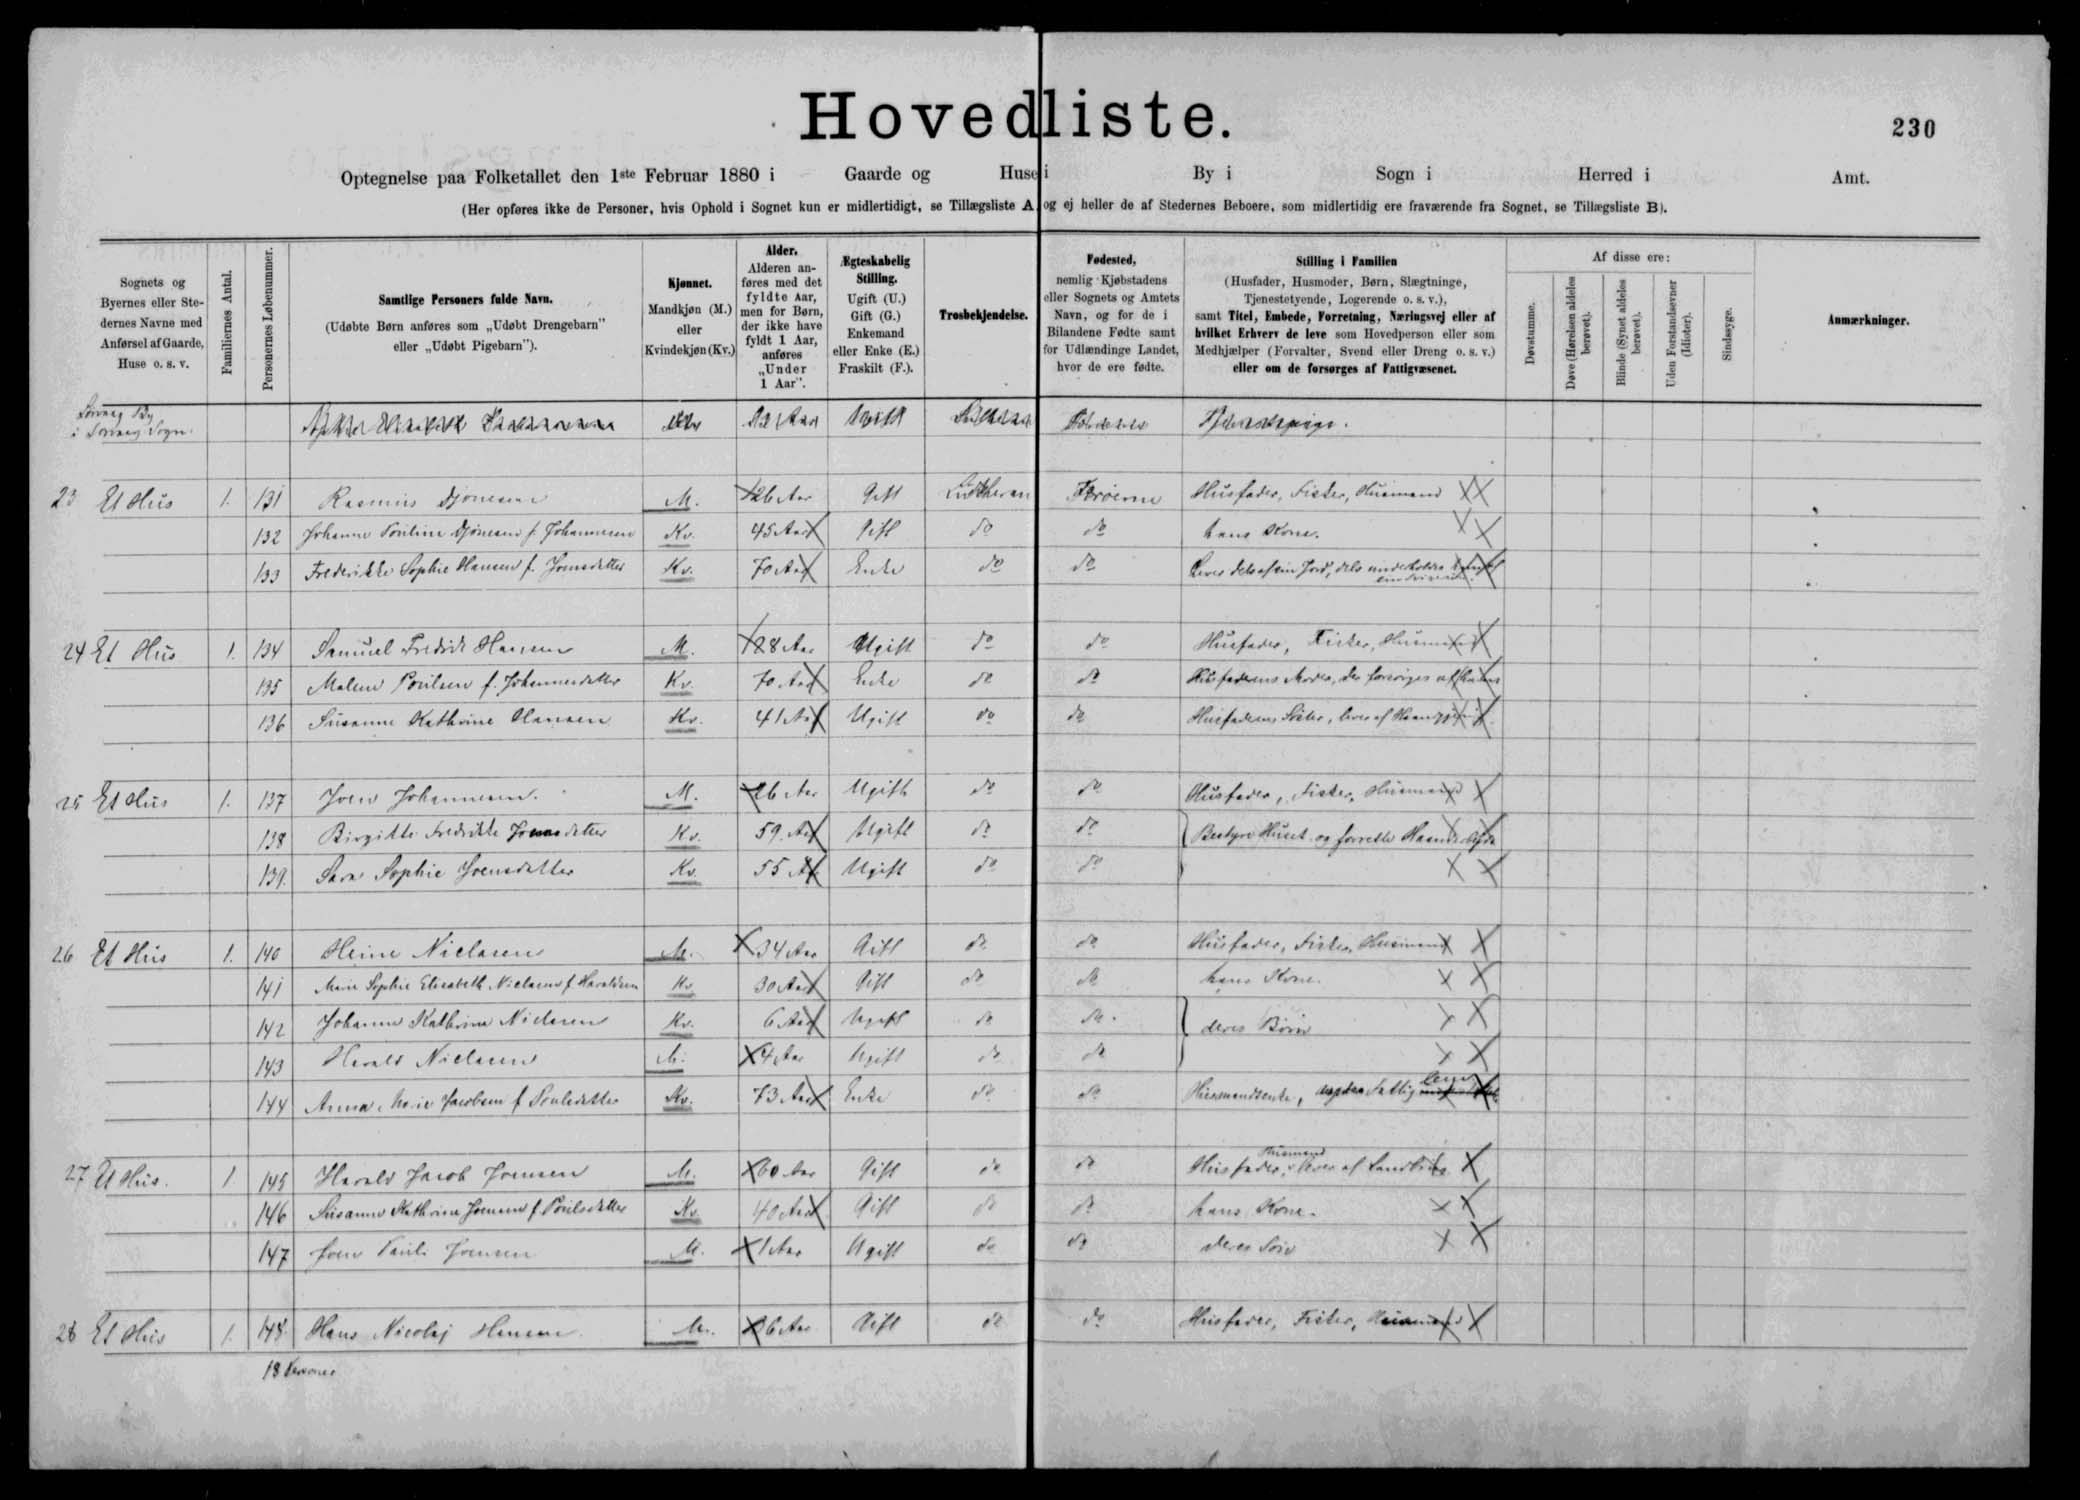 Hovedliste.
230
Optegnelse paa Folketallet den 1ste Februar 1880 i Gaarde og Huse i By i Sogn i Herred i Amt.
(Her opføres ikke de Personer, hvis Ophold i Sognet kun er midlertidigt, se Tillægsliste A, og ej heller de af Stedernes Beboere, som midlertidig ere fraværende fra Sognet, se Tillægsliste B).
Sognets og Byernes eller Stedernes Navne med Anførsel af Gaarde, Huse o. s. v.
Familiernes Antal.
Personernes Løbenummer.
Samtlige Personers fulde Navn.
(Udøbte Børn anføres som „Udøbt Drengebarn" eller „Udøbt Pigebarn").
Kjønnet.
Mandkjøn (M.) eller Kvindekjøn (Kv.)
Alder.
Alderen anføres med det fyldte Aar, men for Børn, der ikke have fyldt 1 Aar, anføres „Under 1 Aar".
Ægteskabelig Stilling.
Ugift (U.) Gift (G.) Enkemand eller Enke (E.) Fraskilt (F.).
Trosbekjendelse.
Fødested,
nemlig Kjøbstadens eller Sognets og Amtets Navn, og for de i Bilandene Fødte samt for Udlændinge Landet, hvor de ere fødte.
Stilling i Familien
(Husfader, Husmoder, Børn, Slægtninge, Tjenestetyende, Logerende o. s. v.),
samt Titel, Embede, Forretning, Næringsvej eller af hvilket Erhverv de leve som Hovedperson eller som Medhjælper (Forvalter, Svend eller Dreng o. s. v.)
eller om de forsørges af Fattigvæsenet.
Af disse ere:
Døvstumme.
Døve (Hørelsen aldeles berøvet).
Blinde (Synet aldeles berøvet).
Uden Forstandsevner (Idioter).
Sindssyge.
Anmærkninger.
Sørvaag By
i Sørvaag Sogn.
23 Et Hus 1. 131 Rasmus Djonesen M. 26 Aar Gift Lutheran Færøerne Husfader, Fisker, Husmand
132 Johanne Pouline Djonesen f. Johannesen Kv. 45 Aar Gift do do hans Kone.
133 Frederikke Sophie Hansen f. Joensdatter Kv. 70 Aar Enke do do Lever dels af sin Jord, dels
24 Et Hus 1. 134 Samuel Fredrik Hansen M. 28 Aar Ugift do do Husfader, Fisker, Husmand
135 Malene Poulsen f. Johannesdatter Kv. 70 Aar Enke do do Husfaderens Moder, der forsørges af
136 Susanne Kathrine Hansen Kv. 41 Aar Ugift do do Husfaderens Søster, lever af Haandgjerning.
25 Et Hus 1. 137 Joen Johannesen. M. 26 Aar Ugift do do Husfader, Fisker, Husmand
138 Birgitte Fredrikke Joensdatter Kv. 59. Aar Ugift do do Bestyre Huset og forrette Haandarbejde
139. Sara Sophie Joensdatter Kv. 55 Aar Ugift do do
26 Et Hus 1. 140 Heine Niclasen M. 34 Aar Gift do do Husfader, Fisker, Husmand
141 Marie Sophie Elisabeth Niclasen f. Haraldsen Kv. 30 Aar Gift do do hans Kone.
142 Johanne Kathrine Niclasen Kv. 6 Aar Ugift do do deres Børn
143 Harald Niclasen M. 4 Aar Ugift do do
144 Anna Marie Jacobsen f. Poulsdatter Kv. 73 Aar Enke do do Husmandsenke, Fattiglem
27 Et Hus. 1 145 Harald Jacob Joensen M. 60 Aar Gift do do Husfader, Husmand lever af Landbrug
146 Susanne Kathrine Joensen f. Poulsdatter Kv. 40 Aar Gift do do hans Kone.
147 Joen Pauli Joensen M. 1 Aar Ugift do do deres Søn
28 Et Hus 1. 148. Hans Nicolaj Hansen M. 26 Aar Gift do do Husfader, Fisker, Husmand
18 Personer